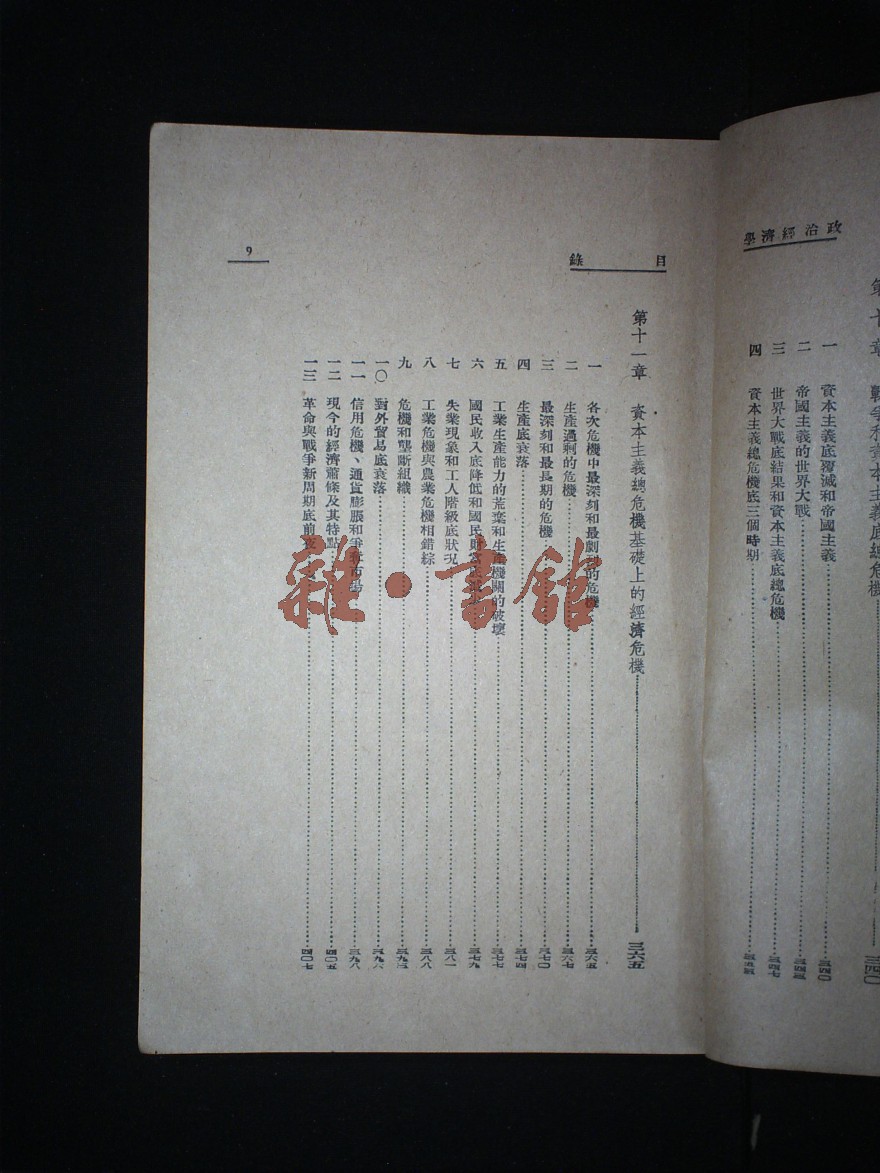 政治經濟學
第十章 戰爭和資本主義底總危機……三四〇
一 資本主義底覆滅和帝國主義……三四〇
二 帝國主義的世界大戰……三四三
三 世界大戰底結果和資本主義底總危機……三四七
四 資本主義總危機底三個時期……
目錄
9
第十一章 資本主義總危機基礎上的經濟危機……三六五
一 各次危機中最深刻和最劇烈的危機……三六五
二 生產過剩的危機……三六七
三 最深刻和最長期的危機……三七〇
四 生產底衰落……三七四
五 工業生產能力的荒棄和生產機關的破壞……三七七
六 國民收入底降低和國民財富底……三七九
七 失業現象和工人階級底狀況……三八一
八 工業危機與農業危機相錯綜……三八八
九 危機和壟斷組織……三九三
一〇 對外貿易底衰落……三九六
一一 信用危機、通貨膨脹和爭奪市場……三九八
一二 現今的經濟蕭條及其特點……四〇五
一三 革命與戰爭新周期底前夜……四〇七
雜·書館